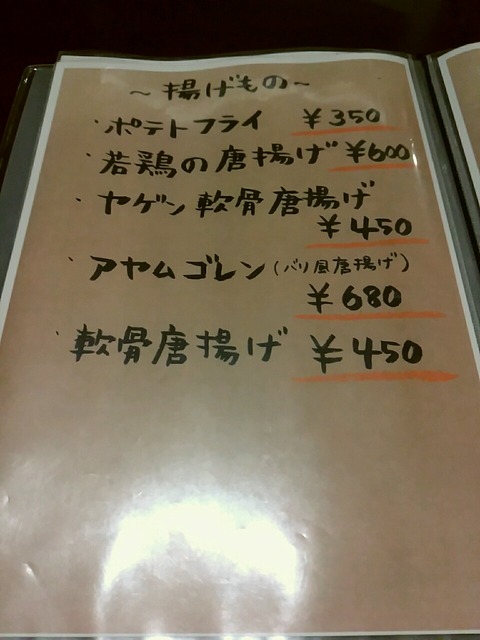 ～揚げもの～
・ポテトフライ ￥350
・若鶏の唐揚げ ￥600
・ヤゲン軟骨唐揚げ
￥450
・アヤムゴレン(バリ風唐揚げ)
￥680
・軟骨唐揚げ ￥450